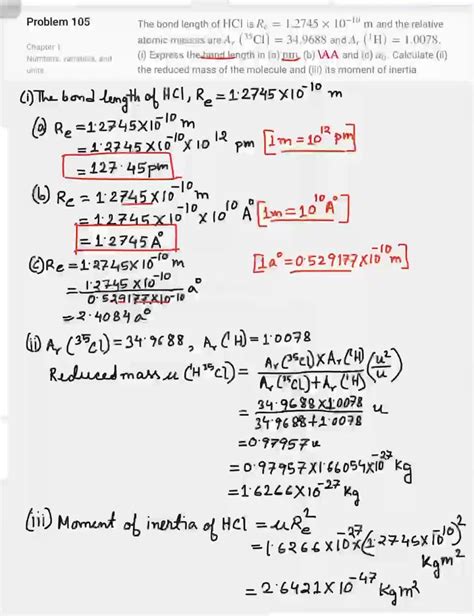 Problem 105
Chapter 1
Numbers, variables, and
units
The bond length of HCl is Rₑ = 1.2745 × 10⁻¹⁰ m and the relative
atomic masses are Aᵣ (³⁵Cl) = 34.9688 and Aᵣ (¹H) = 1.0078.
(i) Express the bond length in (a) pm, (b) \AA and (c) a₀. Calculate (ii)
the reduced mass of the molecule and (iii) its moment of inertia
(i) The bond length of HCl, Re = 1.2745×10⁻¹⁰ m
(a) Re = 1.2745×10⁻¹⁰ m
= 1.2745×10⁻¹⁰ × 10¹² pm [1m = 10¹² pm]
= 127.45 pm
(b) Re = 1.2745×10⁻¹⁰ m
= 1.2745×10⁻¹⁰ × 10¹⁰ A° [1m = 10¹⁰ A°]
= 1.2745 A°
(c) Re = 1.2745×10⁻¹⁰ m [1a° = 0.529177×10⁻¹⁰ m]
= 1.2745×10⁻¹⁰ / 0.529177×10⁻¹⁰ a°
= 2.4084 a°
(ii) Ar (³⁵Cl) = 34.9688, Ar (¹H) = 1.0078
Reduced mass u (¹H³⁵Cl) = Ar(³⁵Cl) × Ar(¹H) / Ar(³⁵Cl) + Ar(¹H) (u²/u)
= 34.9688×1.0078 / 34.9688+1.0078 u
= 0.97957u
= 0.97957×1.66054×10⁻²⁷ Kg
= 1.6266×10⁻²⁷ Kg
(iii) Moment of inertia of HCl = uRe²
= 1.6266×10⁻²⁷×(1.2745×10⁻¹⁰)² Kgm²
= 2.6421×10⁻⁴⁷ Kgm²